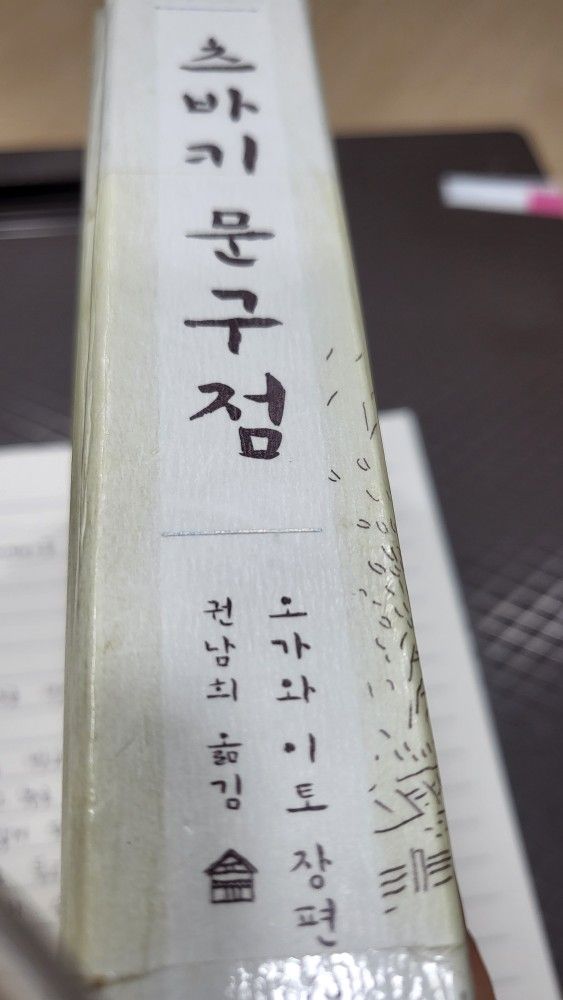 츠바키 문구점
오가와 이토 장편
권남희 옮김